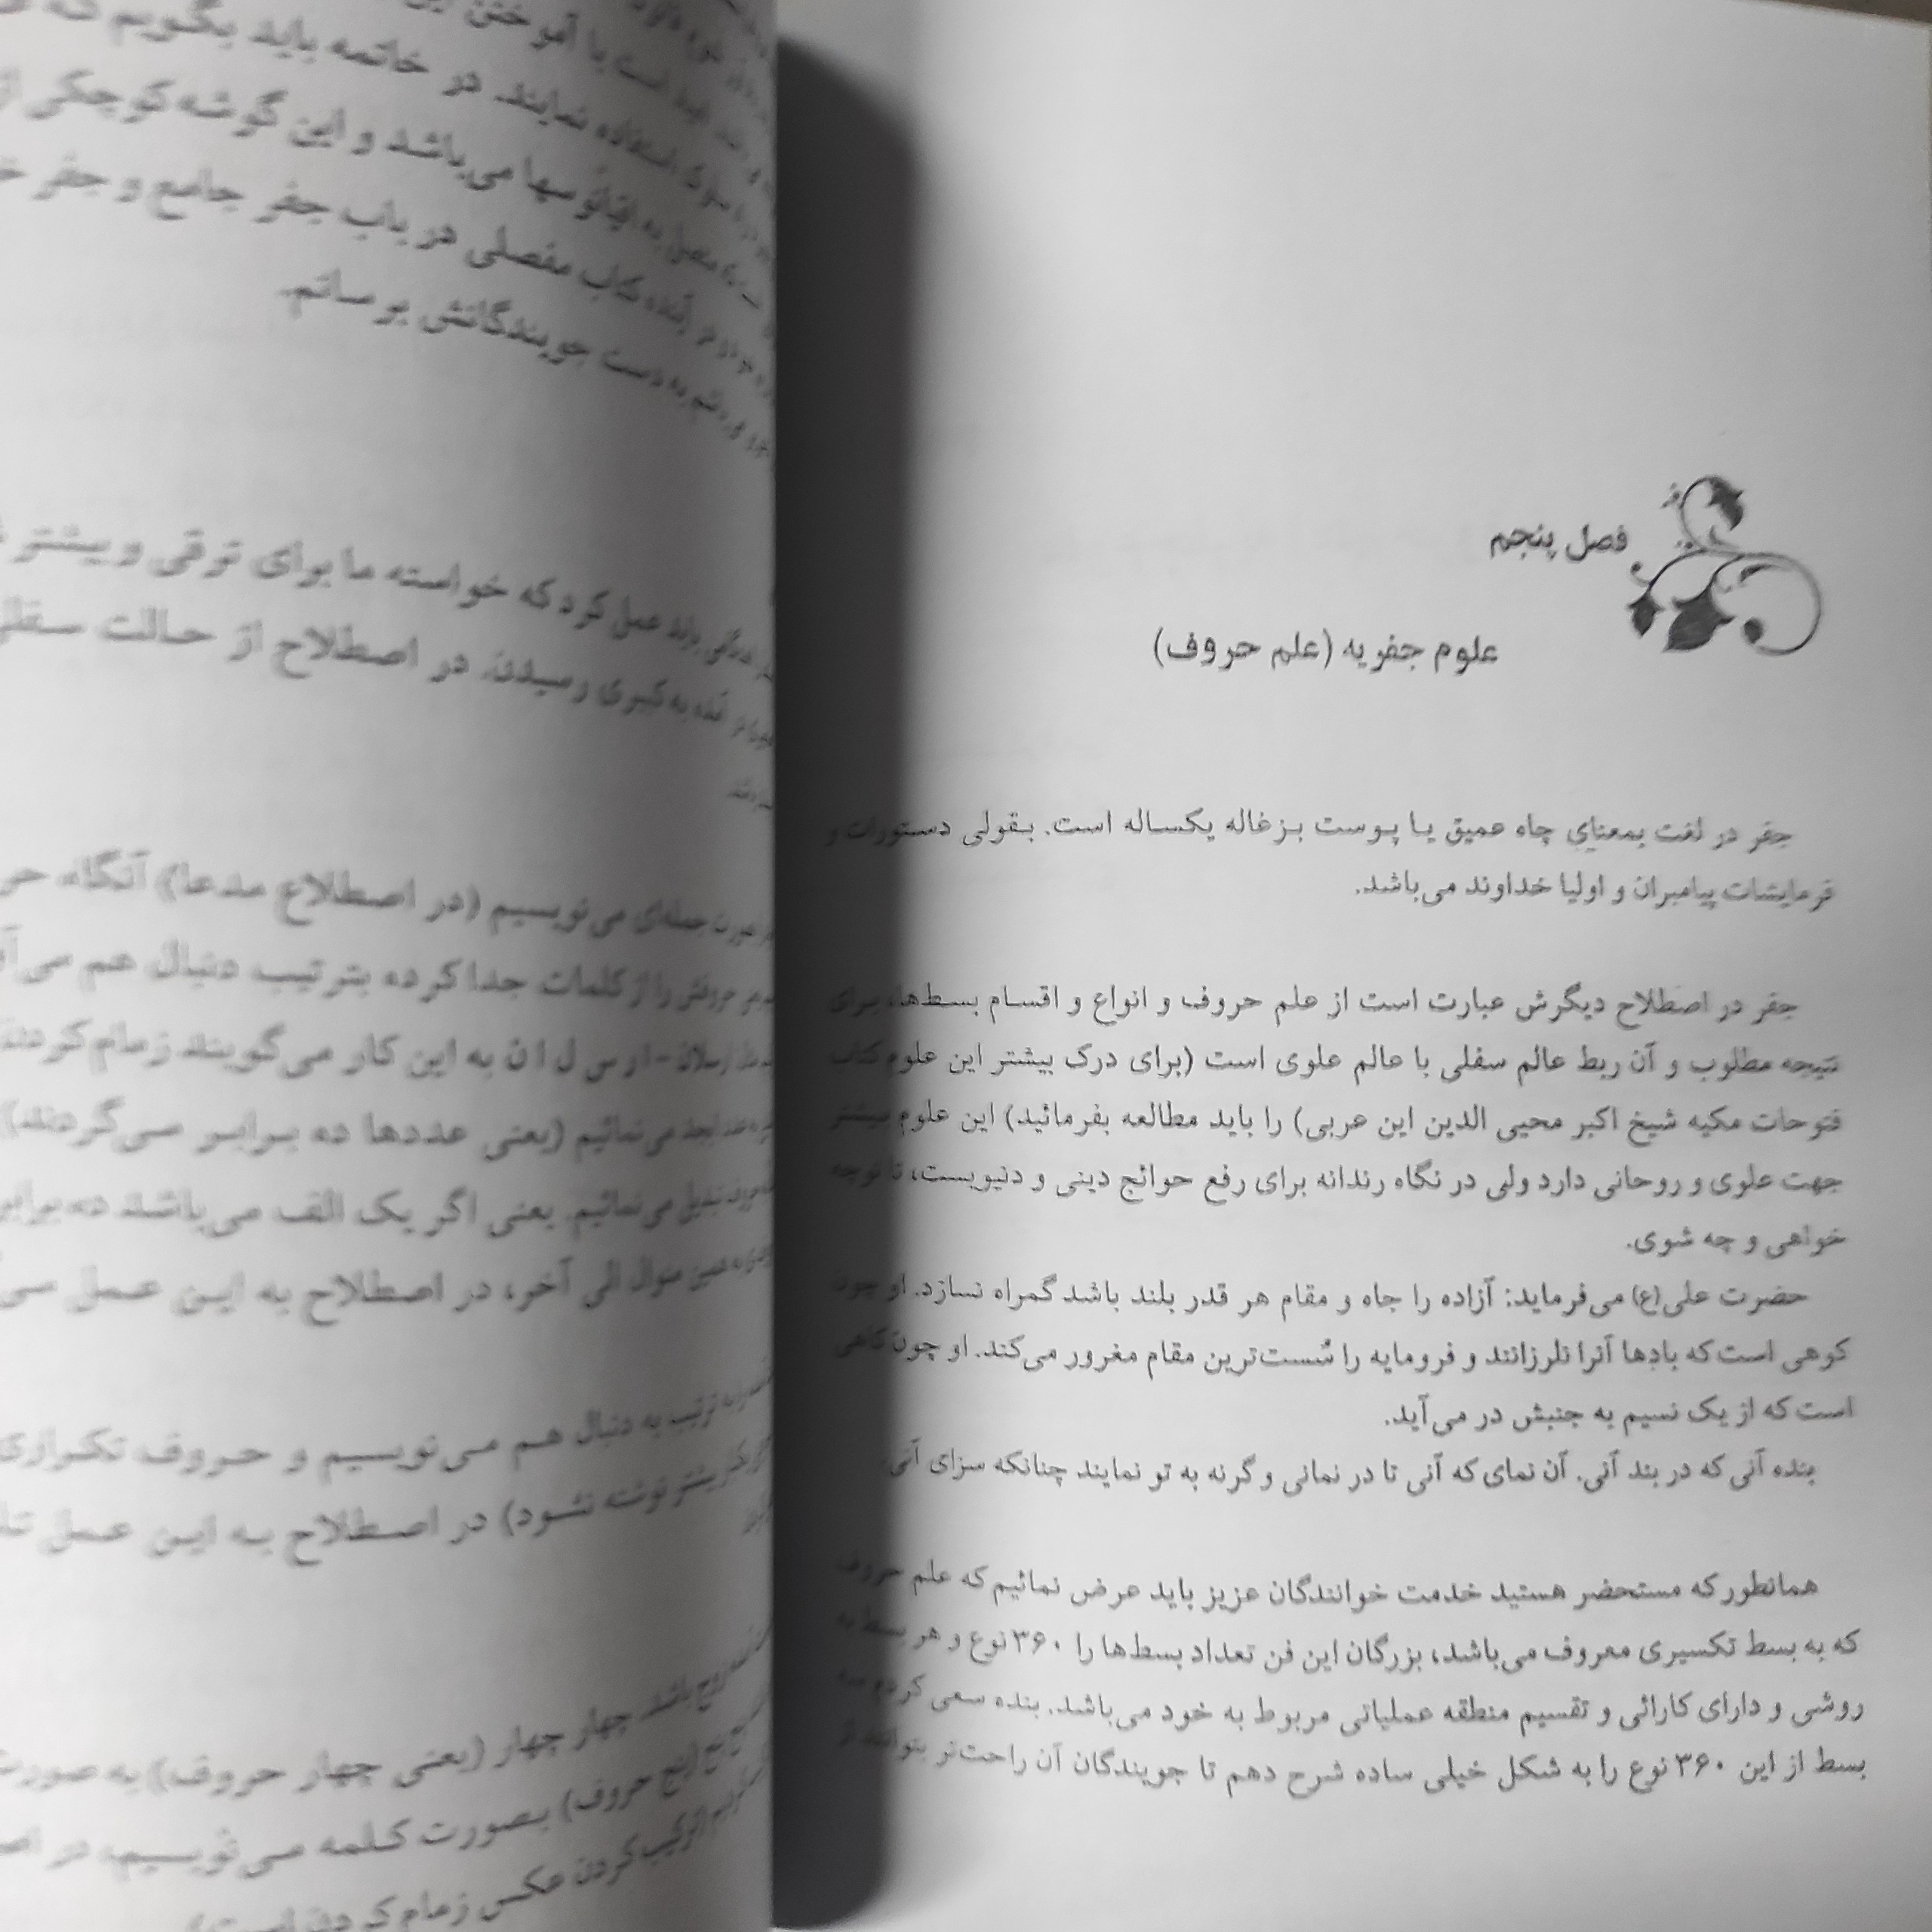 فصل پنجم
علوم جفریه (علم حروف)
جفر در لغت بمعنای چاه عمیق یا پوست بزغاله یکساله است. بقولی دستورات و
فرمایشات پیامبران و اولیا خداوند می‌باشد.
جفر در اصطلاح دیگرش عبارت است از علم حروف و انواع و اقسام بسط‌ها، برای
نتیجه مطلوب و آن ربط عالم سفلی با عالم علوی است (برای درک بیشتر این علوم کتاب
فتوحات مکیه شیخ اکبر محیی الدین ابن عربی) را باید مطالعه بفرمائید) این علوم بیشتر
جهت علوی و روحانی دارد ولی در نگاه رندانه برای رفع حوائج دینی و دنیویست، تا توچه
خواهی و چه شوی.
حضرت علی(ع) می‌فرماید: آزاده را جاه و مقام هر قدر بلند باشد گمراه نسازد. او چون
کوهی است که بادها آنرا نلرزانند و فرومایه را سُست‌ترین مقام مغرور می‌کند. او چون کاهی
است که از یک نسیم به جنبش در می‌آید.
بنده آنی که در بند آنی. آن نمای که آنی تا در نمانی و گرنه به تو نمایند چنانکه سزای آنی.
همانطور که مستحضر هستید خدمت خوانندگان عزیز باید عرض نمائیم که علم حروف
که به بسط تکسیری معروف می‌باشد، بزرگان این فن تعداد بسط‌ها را ۳۶۰ نوع و هر بسط به
روشی و دارای کارائی و تقسیم منطقه عملیاتی مربوط به خود می‌باشد. بنده سعی کردم سه
بسط از این ۳۶۰ نوع را به شکل خیلی ساده شرح دهم تا جویندگان آن راحت‌تر بتوانند از
آموختن
استفاده نمایند. در خاتمه باید بگویم که
اقیانوسها می‌باشد و این گوشه کوچکی از
آینده کتاب مفصلی در باب جفر جامع و جفر
به دست جویندگانش برسانم.
باید عمل کرد که خواسته ما برای ترقی و بیشتر
به کبیری رسیدن. در اصطلاح از حالت سفلی
جمله‌ای می‌نویسیم (در اصطلاع مدعا) آنگاه
حروفش را از کلمات جدا کرده بترتیب دنبال هم
ارسلان - ا ر س ل ا ن به این کار می‌گویند زمام کردن
ابجد می‌نمائیم (یعنی عددها ده برابر می‌گردند)
تبدیل می‌نمائیم. یعنی اگر یک الف می‌باشد ده برابر
منوال الی آخر، در اصطلاح به این عمل
ترتیب به دنبال هم می‌نویسیم و حروف تکراری
بیشتر نوشته نشود) در اصطلاح به این عمل
زوج باشد. چهار چهار (یعنی چهار حروف) به صورت
پنج (پنج حروف) بصورت کلمه می‌نویسیم، در
(ترکیب کردن عکس زمام کردن است)